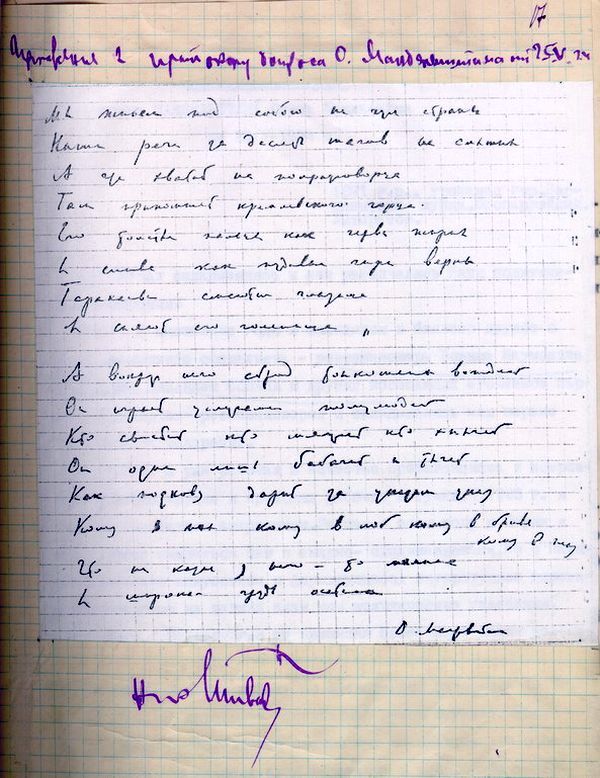 17
Приложение к протоколу допроса О. Мандельштама от 25 V. 34
Мы живем под собою не чуя страны
Наши речи за десять шагов не слышны
А где хватит на полразговорца
Там припомнят кремлевского горца.
Его толстые пальцы как черви жирны
И слова как пудовые гири верны
Тараканьи смеются глазища
И сияют его голенища
А вокруг него сброд тонкошеих вождей
Он играет услугами полулюдей
Кто свистит кто мяучит кто хнычет
Он один лишь бабачит и тычет
Как подкову дарит за указом указ
Кому в пах кому в лоб кому в бровь
кому в глаз
Что ни казнь у него – то малина
И широкая грудь осетина
О. Мандельштам